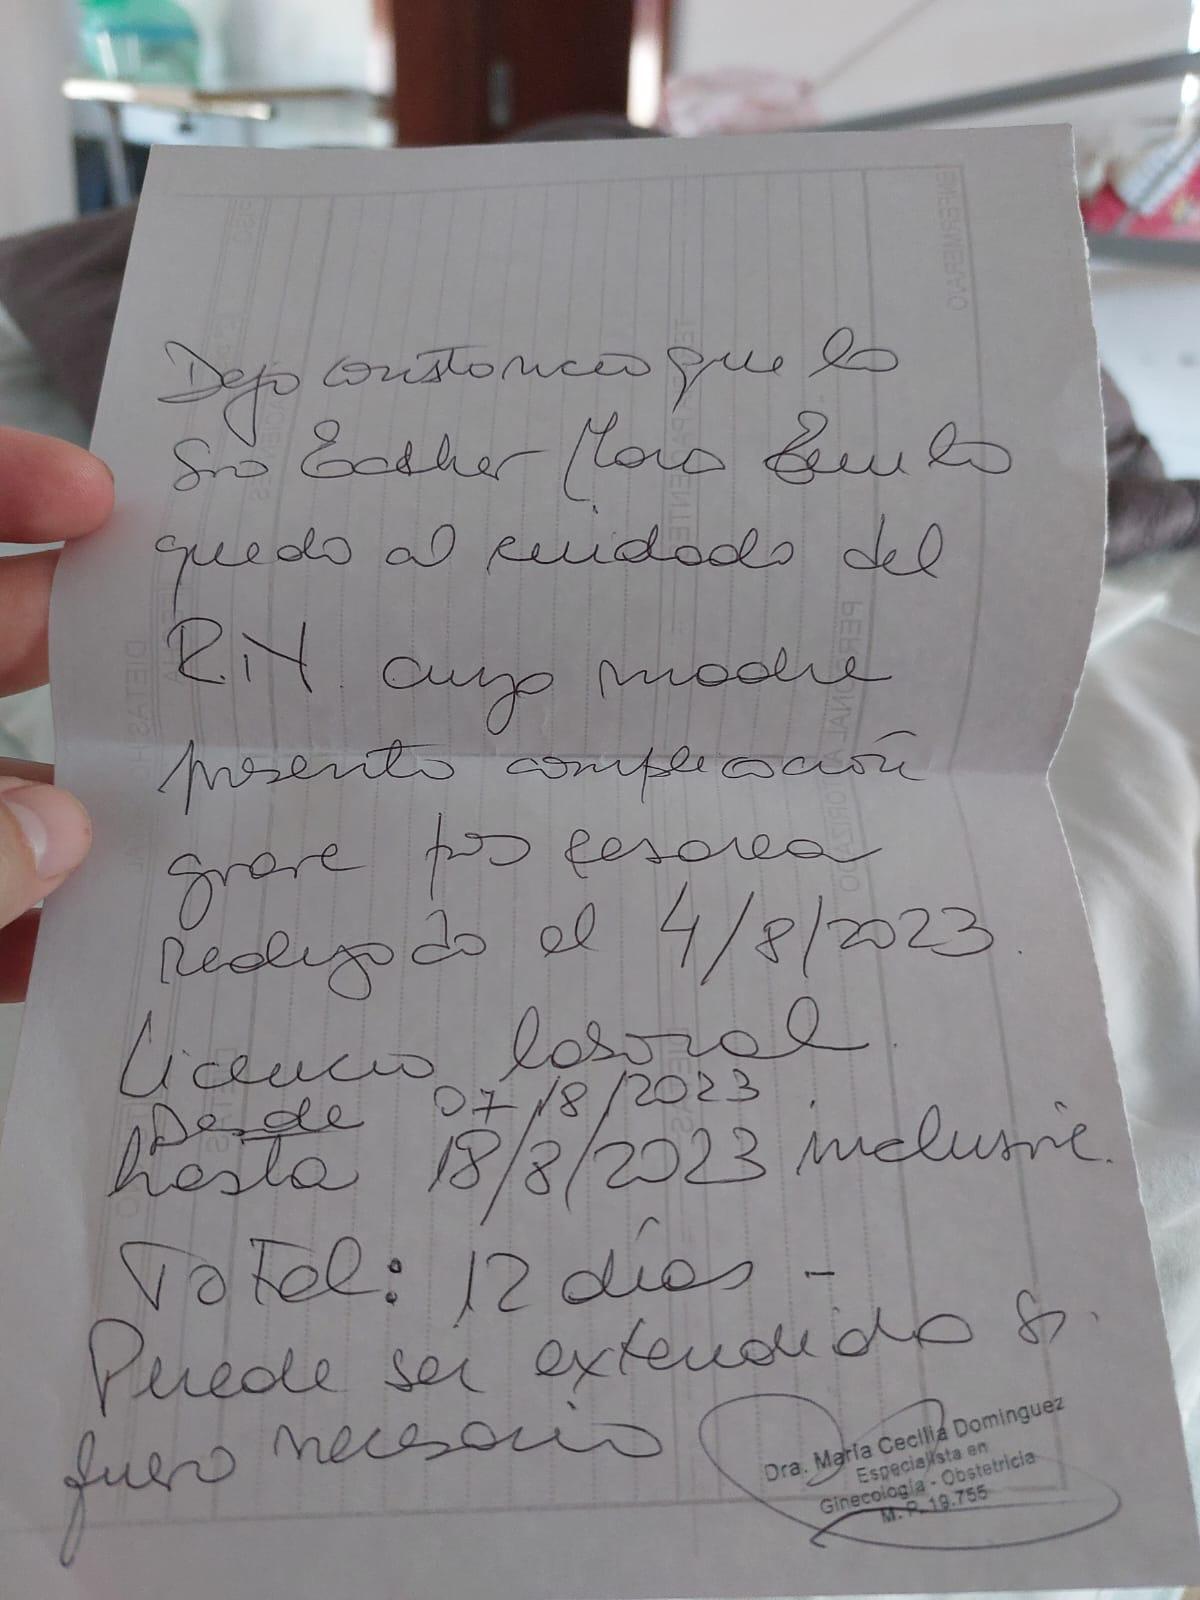 Dejo constancia que la
Sra Esther Mora
queda al cuidado del
R.N. cuya madre
presento complicación
grave pos cesarea
el 4/8/2023.
Licencia laboral.
Desde 07/8/2023
hasta 18/8/2023 inclusive.
Total: 12 días -
Puede ser extendida si
fuera necesario
Dra. María Cecilia Dominguez
Especialista en
Ginecología - Obstetricia
M. P. 19.755
PERSONAL AUTORIZADO